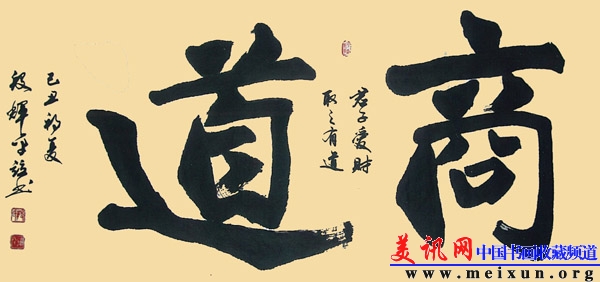 商道
君子愛財
取之有道
己丑初夏
美讯网 中国书画收藏频道
www.meixun.org